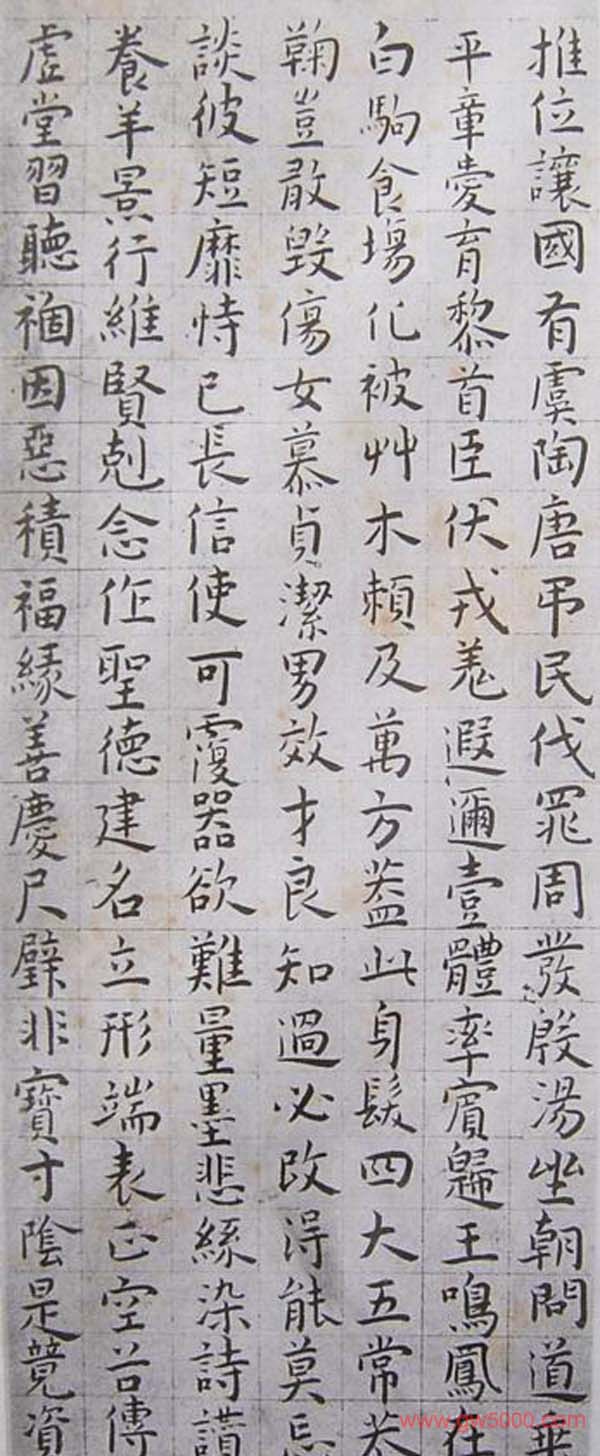 推位讓國有虞陶唐弔民伐罪周發殷湯坐朝問道垂
平章愛育黎首臣伏戎羌遐邇壹體率賓歸王鳴鳳在
白駒食場化被艸木賴及萬方蓋此身髮四大五常恭
鞠豈敢毀傷女慕貞潔男效才良知過必改得能莫忘
談彼短靡恃己長信使可覆器欲難量墨悲絲染詩讚
養羊景行維賢剋念作聖德建名立形端表正空谷傳
虛堂習聽禍因惡積福緣善慶尺璧非寶寸陰是競資
www.gw5000.com